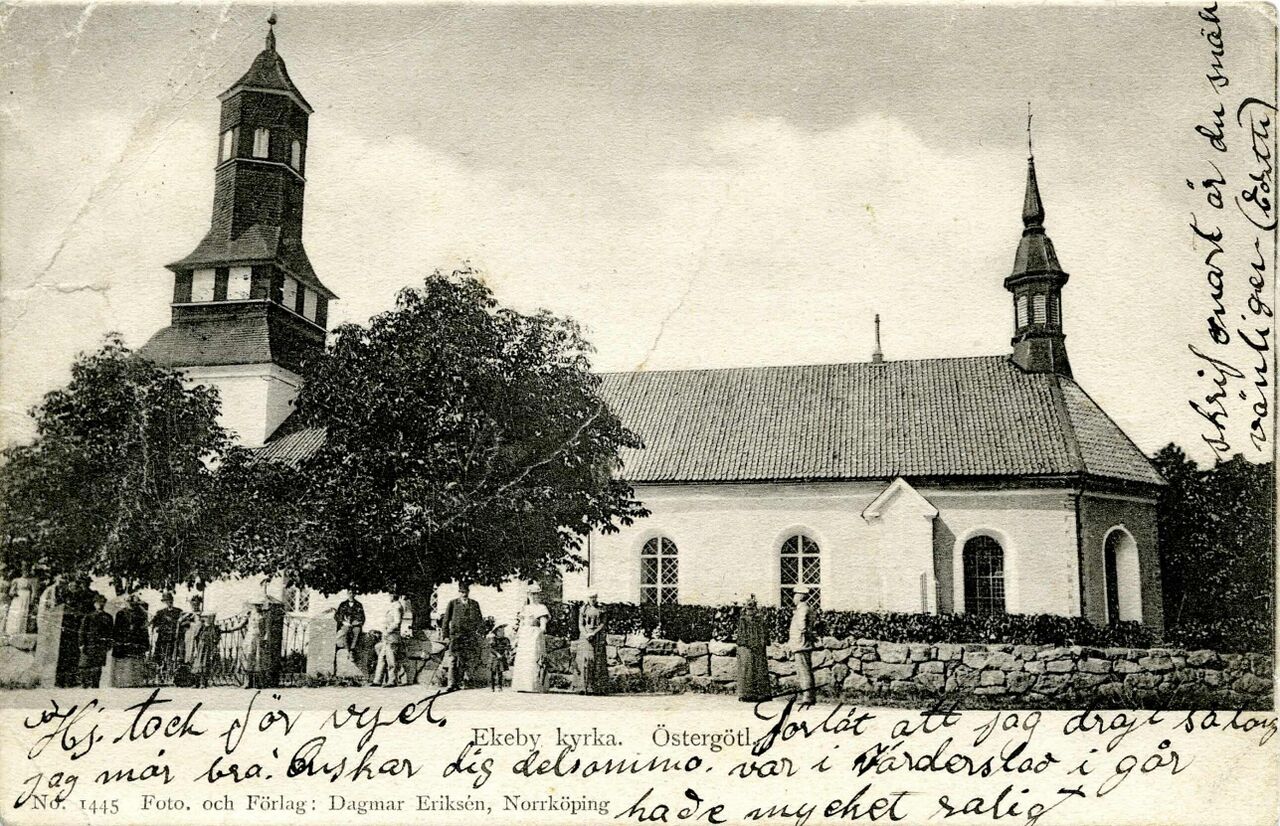 Hj. tack för vyet.
Ekeby kyrka. Östergötl.
jag mår bra. Önskar dig delsammo.
No. 1445 Foto. och Förlag: Dagmar Eriksén, Norrköping
Förlåt att jag drajt så long
var i Vårderslav i går
hade mycket raligt
skrif snart är du snäl
vänligen